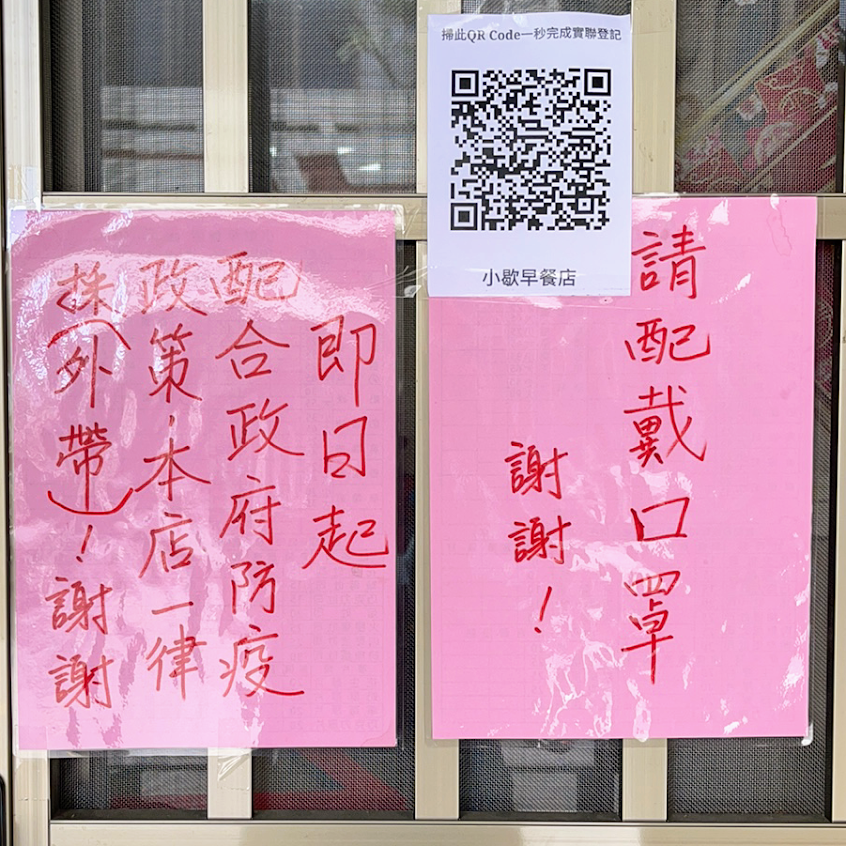 掃此QR Code一秒完成實聯登記
小歇早餐店
請配戴口罩
謝謝！
即日起
配合政府防疫
政策，本店一律
採（外帶）！謝謝